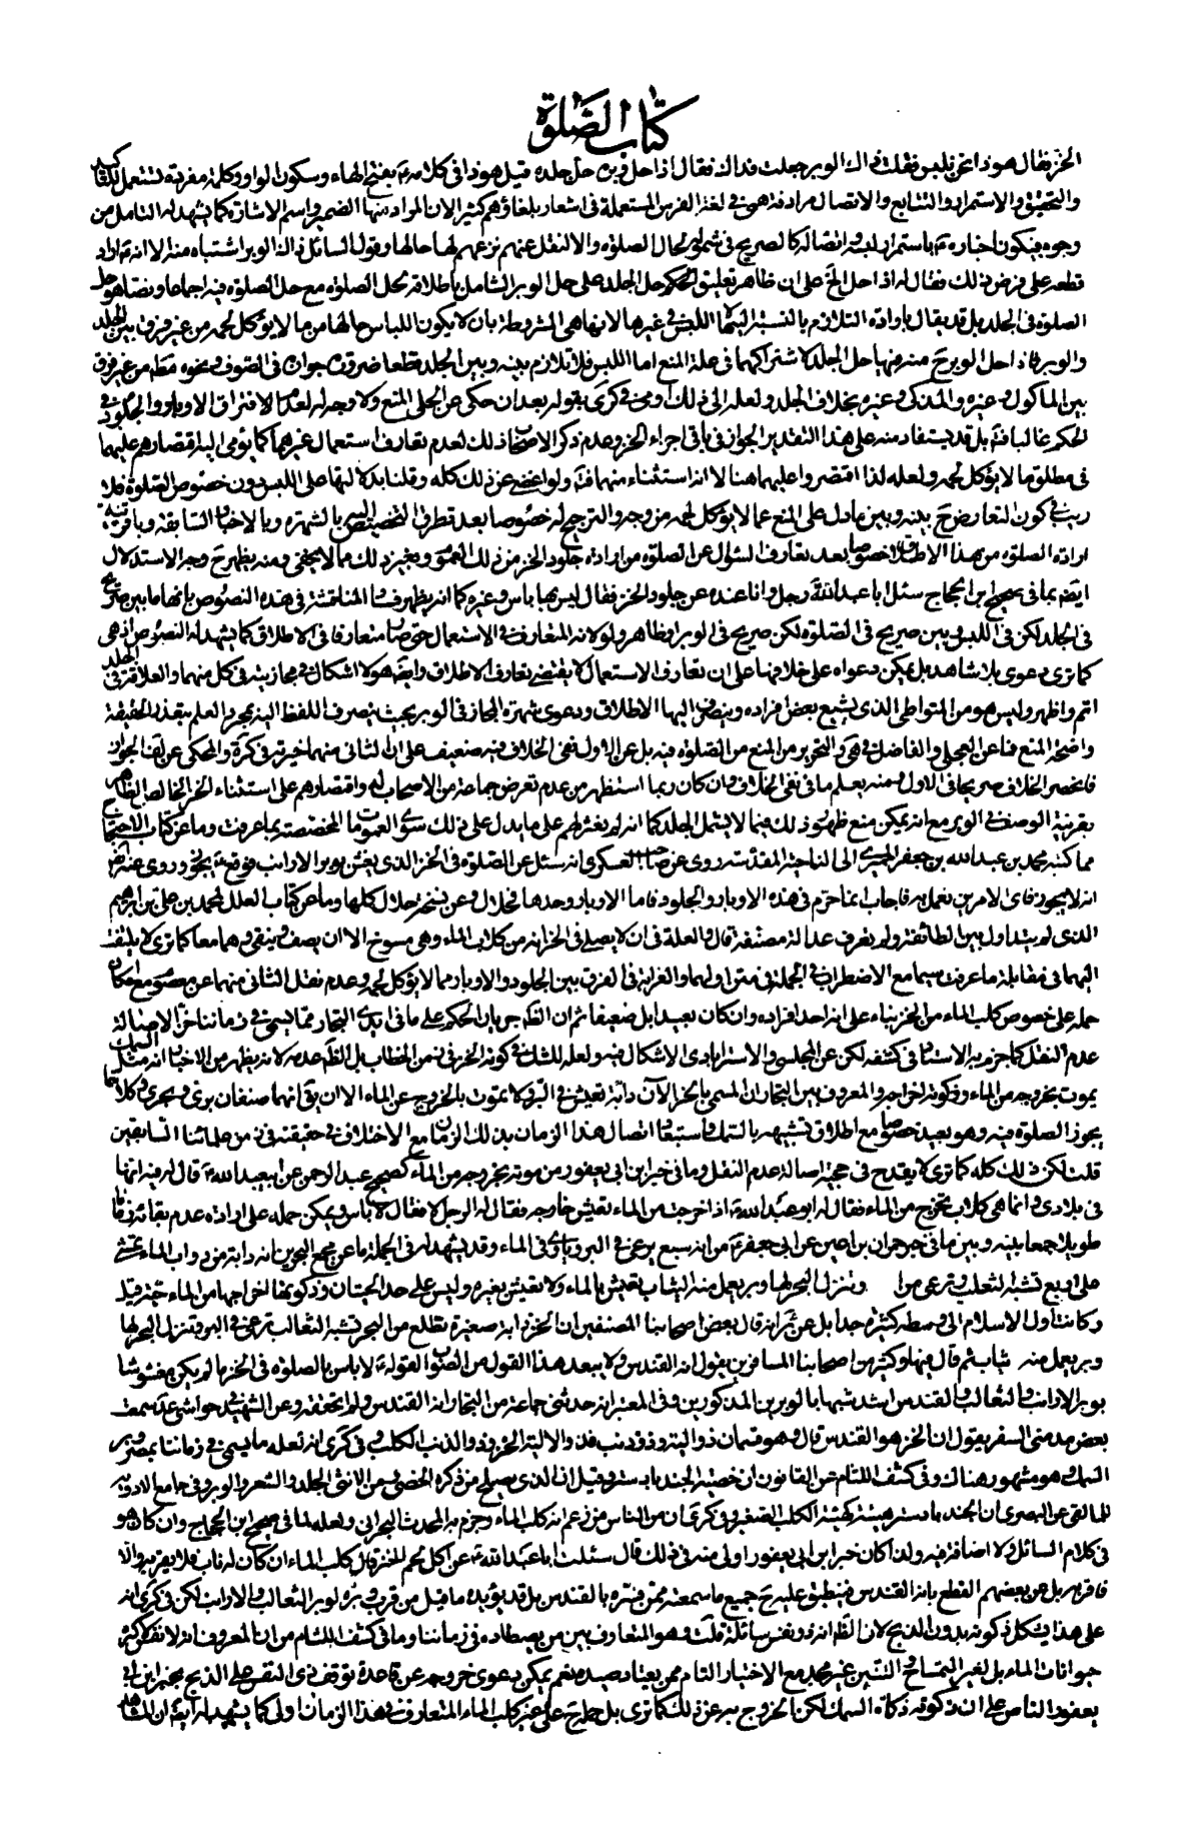 كتاب الصلوة
الخز فقال هوذا نحن نلبس فقلت ذاك الوبر جعلت فداك فقال اذا حل وبره حل جلده قيل هوذا في كلامه بفتح الهاء وسكون الواو وكلمة مفردة تستعمل للتاكيد
والتحقيق والاستمرار والتتابع والاتصال مرادفة هي في لغة الفرس المستعملة في اشعار بلغاؤهم كثيرا لان المراد منها الضمير واسم الاشارة كما يشهد له التامل من
وجوه فيكون اخباره باستمرار لبسه واتصاله كالصريح في شموله لحال الصلوة والا لنقل عنهم نزعهم لها حالها وقول السائل ذاك الوبر اشتباه منه لا انه اراد
قطعه على فرض ذلك فقال له اذا حل الخ على ان ظاهر تعليق الحكم حل الجلد على حل الوبر الشامل باطلاقه لحل الصلوة مع حل الصلوة فيه اجماعا ونصا هو حل
الصلوة في الجلد بل قد يقال بارادة التلازم بالنسبة اليها اللبس في غيرها لانها هي المشروطة بان لا يكون اللباس حالها من ما لا يؤكل لحمه من غير فرق بين الجلد
والوبر فاذا حل الوبر ح منه فيها حل الجلد لاشتراكهما في علة المنع اما اللبس فلا تلازم بينه وبين الجلد قطعا ضرورة جوازه في الصوف ونحوه مطلقا من غير فرق
بين الماكول وغيره والمذكى وغيره بخلاف الجلد ولعله الى ذلك اومى في كرى بقوله بعد ان حكى عن الحلي المنع ولا وجه له لعدم الافتراق الاوبار والجلود في
الحكم غالبا فتأمل بل قد يستفاد منه على هذا التقدير الجواز في باقي اجزاء الخز وعدم ذكر الاصحاب ذلك لعدم تعارف استعمال غيرهما كما يؤمي اليه اقتصارهم عليهما
في مطلق ما لا يؤكل لحمه ولعله لذا اقتصروا عليهما هنا لا انه استثناء منهما فتأمل ولو اغضي عن ذلك كله وقلنا بدلالتها على اللبس دون خصوص الصلوة فلا
ريب في كون التعارض ح بينه وبين ما دل على المنع عما لا يؤكل لحمه من وجه والترجيح له خصوصا بعد تطرق التخصيص اليه بالشهرة وبالاخبار السابقة وباقربية
ارادة الصلوة من هذا الاطلاق خصوصا بعد تعارف السؤال عن الصلوة من ارادة جلود الخز من ذلك العموم وبغير ذلك مما لا يخفى ومنه يظهر ح وجه الاستدلال
ايضا بما في صحيح ابن الحجاج سئل ابا عبد الله رجل وانا عنده عن جلود الخز فقال ليس بها باس وغيره كما انه يظهر المناقشة في هذه النصوص بانها ما بين صريح
في الجلد لكن في اللبس وبين صريح في الصلوة لكن صريح في الوبر او ظاهر ولو لانه المتعارف في الاستعمال خصوصا متعارفا في الاطلاق كما يشهد له النصوص اذ هي
كما ترى دعوى بلا شاهد بل يمكن دعواه على خلافها على ان تعارف الاستعمال لا يقتضي تعارف الاطلاق وايضا هو لا اشكال في مجازيته في كل منهما والعلاقة في الجلد
اتم واظهر وليس هو من المتواطي الذي يشيع بعض افراده وينصرف اليها الاطلاق ودعوى شهرة المجاز في الوبر بحيث ينصرف اللفظ اليه بمجرد العلم بتعذر الحقيقة
واضحة المنع فما عن العجلي والفاضل في هي والتحرير من المنع من الصلوة فيه بل عن الاول نفي الخلاف فيه ضعيف على ان الثاني منهما خيرته في كرة والمحكي عن لف الجواز
فانحصر الخلاف صريحا في الاول ومنه يعلم ما في نفي الخلاف وان كان ربما استظهر من عدم تعرض جماعة من الاصحاب له واقتصارهم على استثناء الخز الخالص الظاهر
بقرينة الوصف في الوبر مع انه يمكن منع ظهور ذلك فيما لا يشمل الجلد كما انه لم نعثر لهم على ما يدل على ذلك سوى العمومات المخصصة بما عرفت وما عن كتاب الاحتجاج
مما كتبه محمد بن عبد الله بن جعفر الحميري الى الناحية المقدسة روى عن صاحب العسكر انه سئل عن الصلوة في الخز الذي يغش بوبر الارانب فوقع يجوز وروى عنه ايضا
انه لا يجوز فاي الامرين نعمل به فاجاب انما حرم في هذه الاوبار والجلود فاما الاوبار وحدها فحلال وعن نسخة حلال كلها وما عن كتاب العلل لمحمد بن علي بن ابراهيم
الذي لم يتداول بين الطائفة ولم يعرف عدالة مصنفه قال والعلة في ان لا يصلى في الخز انه من كلاب الماء وهي مسوخ الا ان يصفى وينقى وهما معا كما ترى لا يلتفت
اليهما في مقابلة ما عرفت سيما مع الاضطراب في الجملة في متن اولهما والغرابة في الفرق بين الجلود والاوبار مما لا يؤكل لحمه وعدم نقل الثاني منهما عن معصوم مع امكان
حمله على خصوص كلب الماء من الخز بناء على انه احد افراده وان كان بعيدا بل ضعيفا ثم ان الظ جريان الحكم على ما في ايدي التجار مما يسمى في زماننا خزا لاصالة
عدم النقل كما جزم به الاستاذ في كشفه لكن عن المجلسي والاسترابادي الاشكال فيه ولعله للشك في كونه الخز في زمن الخطاب بل الظ عدمه لانه يظهر من الاخبار انه مثل السمك
يموت بخروجه من الماء وذكوته اخراجه والمعروف بين التجار ان المسمى بالخز الآن دابة تعيش في البر ولا تموت بالخروج عن الماء الا ان يق انهما صنفان بري وبحري وكلاهما
يجوز الصلوة فيه وهو بعيد خصوصا مع اطلاق تشبيهه بالسمك واستبعاد اتصال هذا الزمان بذلك الزمان مع الاختلاف في حقيقته في زمن علمائنا السابقين
قلت لكن ذلك كله كما ترى لا يقدح في حجية اصالة عدم النقل وما في خبر ابن ابي يعفور من موته بخروجه من الماء كصحيح عبد الرحمن عن ابي عبد الله قال له فيه انها
في بلادي وانما هي كلاب تخرج من الماء فقال له ابو عبد الله اذا خرجت من الماء تعيش خارجه فقال له الرجل لا فقال لا باس ويمكن حمله على ارادة عدم بقائه زمانا
طويلا جمعا بينه وبين ما في خبر حمران بن اعين عن ابي جعفر من انه سبع يرعى في البر وياوي في الماء وقد يشهد له في الجملة ما عن مجمع البحرين انه دابة من دواب الماء تمشي
على اربع تشبه الثعلب ترعى من البر وتنزل البحر لها وبر يعمل منه الثياب تعيش بالماء ولا تعيش بغيره وليس على حد الحيتان وذكوتها اخراجها من الماء حية قيل
وكانت اول الاسلام الى وسطه كثيرة جدا بل عن ثم انه قال بعض اصحابنا المصنفين ان الخز دابة صغيرة تطلع من البحر تشبه الثعالب ترعى في البر وتنزل البحر لها
وبر يعمل منه ثياب ثم قال فيها وكثير من اصحابنا المسافرين يقول انه القندس ولا يبعد هذا القول من الصواب لقوله لا باس بالصلوة في الخز ما لم يكن مغشوشا
بوبر الارانب والثعالب والقندس اشد شبها بالوبرين المذكورين وفي المعتبر انه حدثني جماعة من التجار انه القندس ولم اتحققه وعن الشهيد في حواشي عد سمعت
بعض مدمني السفر يقول ان الخز هو القندس قال وهو قسمان ذو الية وذو ذنب فذو الالية الخز وذو الذنب الكلب وفي كرى انه لعله ما يسمى في زماننا بمصر وبر
السمك وهو مشهور هناك وفي كشف اللثام عن القانون ان خصيته الجند بادستر وقيل ان الذي يصلح من ذكره الخصى ومن الانثى الجلد والشعر والوبر وفي جامع الادوية
للمالقي عن البصري ان الجند بادستر هيئته كهيئة الكلب الصغير وفي كرى ان من الناس من زعم انه كلب الماء وجزم به المحدث البحراني ولعله لما في صحيح ابن الحجاج وان كان هو
في كلام السائل ولا اضافة فيه ولذا كان خبر ابن ابي يعفور اولى منه في ذلك قال سئلت ابا عبد الله عن اكل لحم الخز قال كلب الماء ان كان له ناب فلا تقربه والا
فاقربه بل عن بعضهم القطع بانه القندس فينطبق عليه ح جميع ما سمعته ممن فسره بالقندس بل قد يؤيده ما قيل من قرب وبره لوبر الثعالب والارانب لكن في كرى انه
على هذا يشكل ذكوته بدون الذبح لان الظ انه ذو نفس سائلة قلت وهو المتعارف بين من يصطاده في زماننا وما في كشف اللثام من ان المعروف انه لا نفس لكثير
حيوانات الماء بل لغير التمساح والتنين غير مجد مع الاختبار التام ممن يعتاد صيده نعم يمكن دعوى خروجه عن قاعدة توقف ذي النفس على الذبح بخبر ابن ابي
يعفور الناص على ان ذكوته ذكاة السمك لكن الخروج به عن ذلك كما ترى بل حمله على غير كلب الماء المتعارف في هذا الزمان اولى كما يشهد له ايضا ان المشاهد